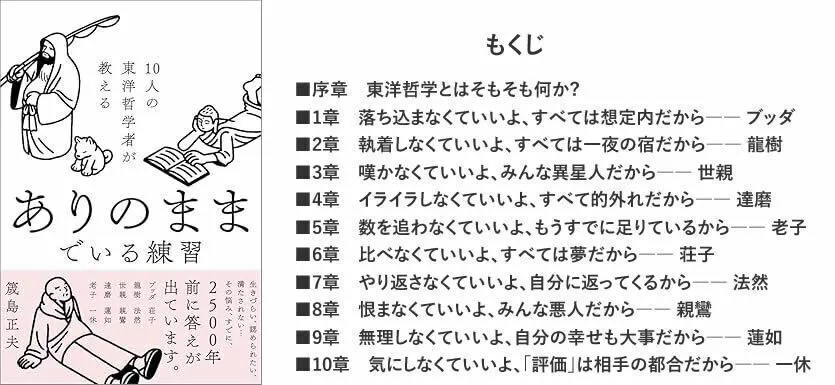 10人の
東洋哲学者が
教える
ありのまま
でいる練習
生きづらい、認められたい、
満たされない…
その悩み、すでに、
2500年
前に答えが
出ています。
ブッダ 荘子
龍樹 法然
世親 親鸞
達磨 蓮如
老子 一休
筬島正夫
もくじ
■序章 東洋哲学とはそもそも何か?
■1章 落ち込まなくていいよ、すべては想定内だから―― ブッダ
■2章 執着しなくていいよ、すべては一夜の宿だから―― 龍樹
■3章 嘆かなくていいよ、みんな異星人だから―― 世親
■4章 イライラしなくていいよ、すべて的外れだから―― 達磨
■5章 数を追わなくていいよ、もうすでに足りているから―― 老子
■6章 比べなくていいよ、すべては夢だから―― 荘子
■7章 やり返さなくていいよ、自分に返ってくるから―― 法然
■8章 恨まなくていいよ、みんな悪人だから―― 親鸞
■9章 無理しなくていいよ、自分の幸せも大事だから―― 蓮如
■10章 気にしなくていいよ、「評価」は相手の都合だから―― 一休